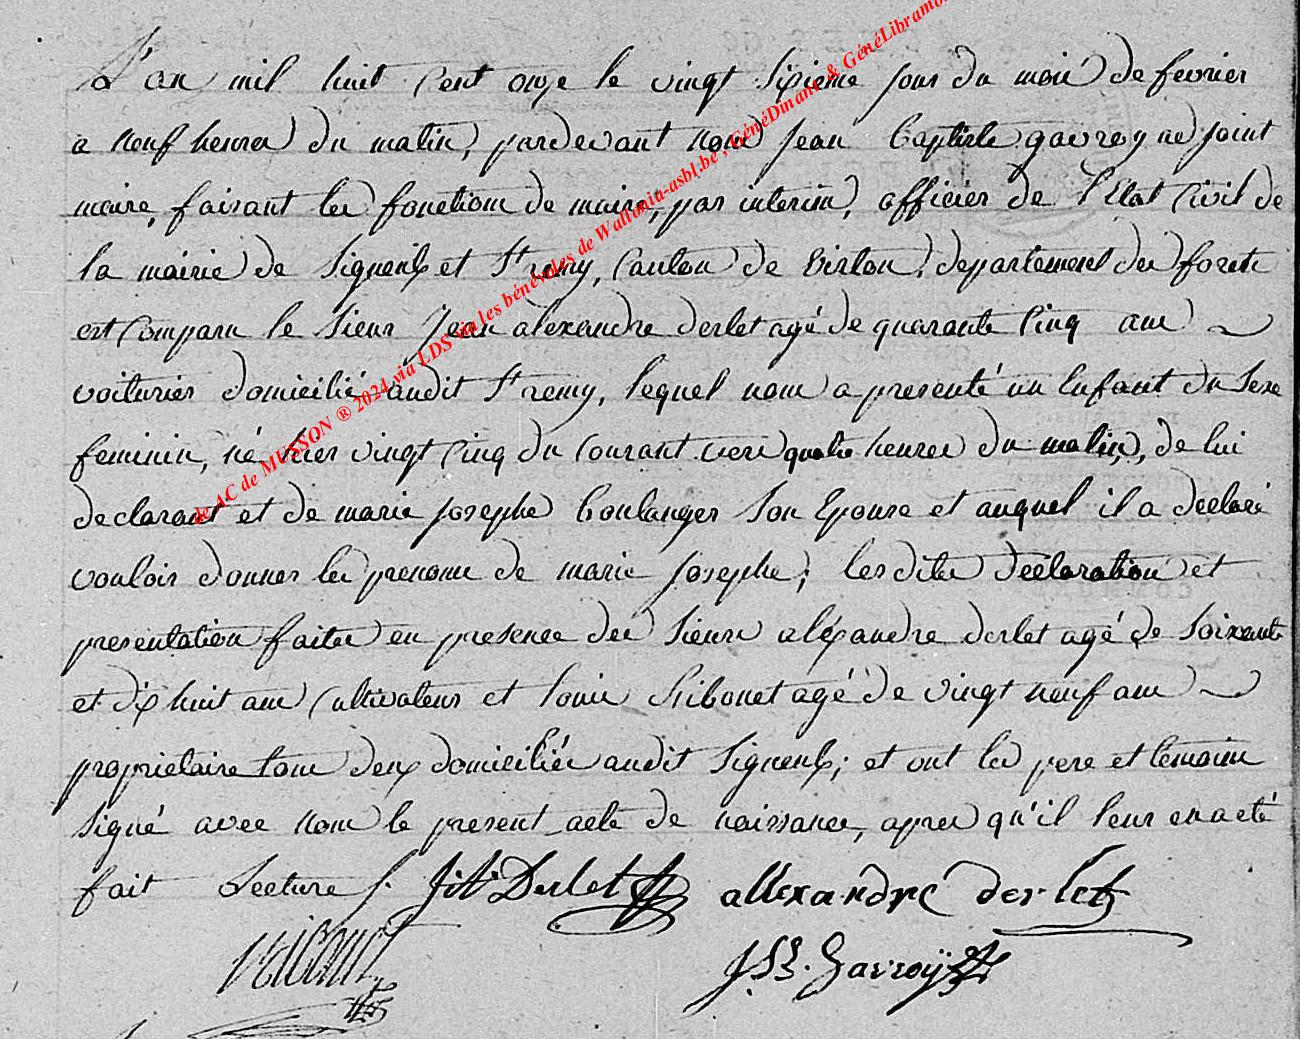 L'an mil huit Cent onze le vingt sixieme jour du mois de fevrier
a neuf heures du matin, pardevant nous jean baptiste gavroy adjoint
maire, faisant les fonctions de maire, par interim, officier de l'Etat Civil de
la mairie de Signeulx et St remy, Canton de Virton, departement des forets
est Comparu le sieur jean alexandre derlet agé de quarante Cinq ans
voiturier domicilié audit St remy, lequel nous a presenté un Enfant du Sexe
feminin, né hier vingt Cinq du Courant vers quatre heures du matin, de lui
declarant et de marie josephe boulanger Son Epouse et auquel il a declaré
vouloir donner les prenoms de marie josephe; lesdites declaration et
presentation faites en presence des Sieurs alexandre derlet agé de Soixante
et dix huit ans Cultivateur et louis Ribonet agé de vingt neuf ans
proprietaire tous deux domiciliés audit Signeulx; et ont les pere et temoins
signé avec nous le present acte de naissance, apres qu'il leur en a eté
fait Lecture /. Derlet allexandre derlet
J B. Gavroÿ
de AC de MUSSON ® 2024 via LDS via les bénévoles de Wallonia-asbl.be, GénéDinant & GénéLibramo